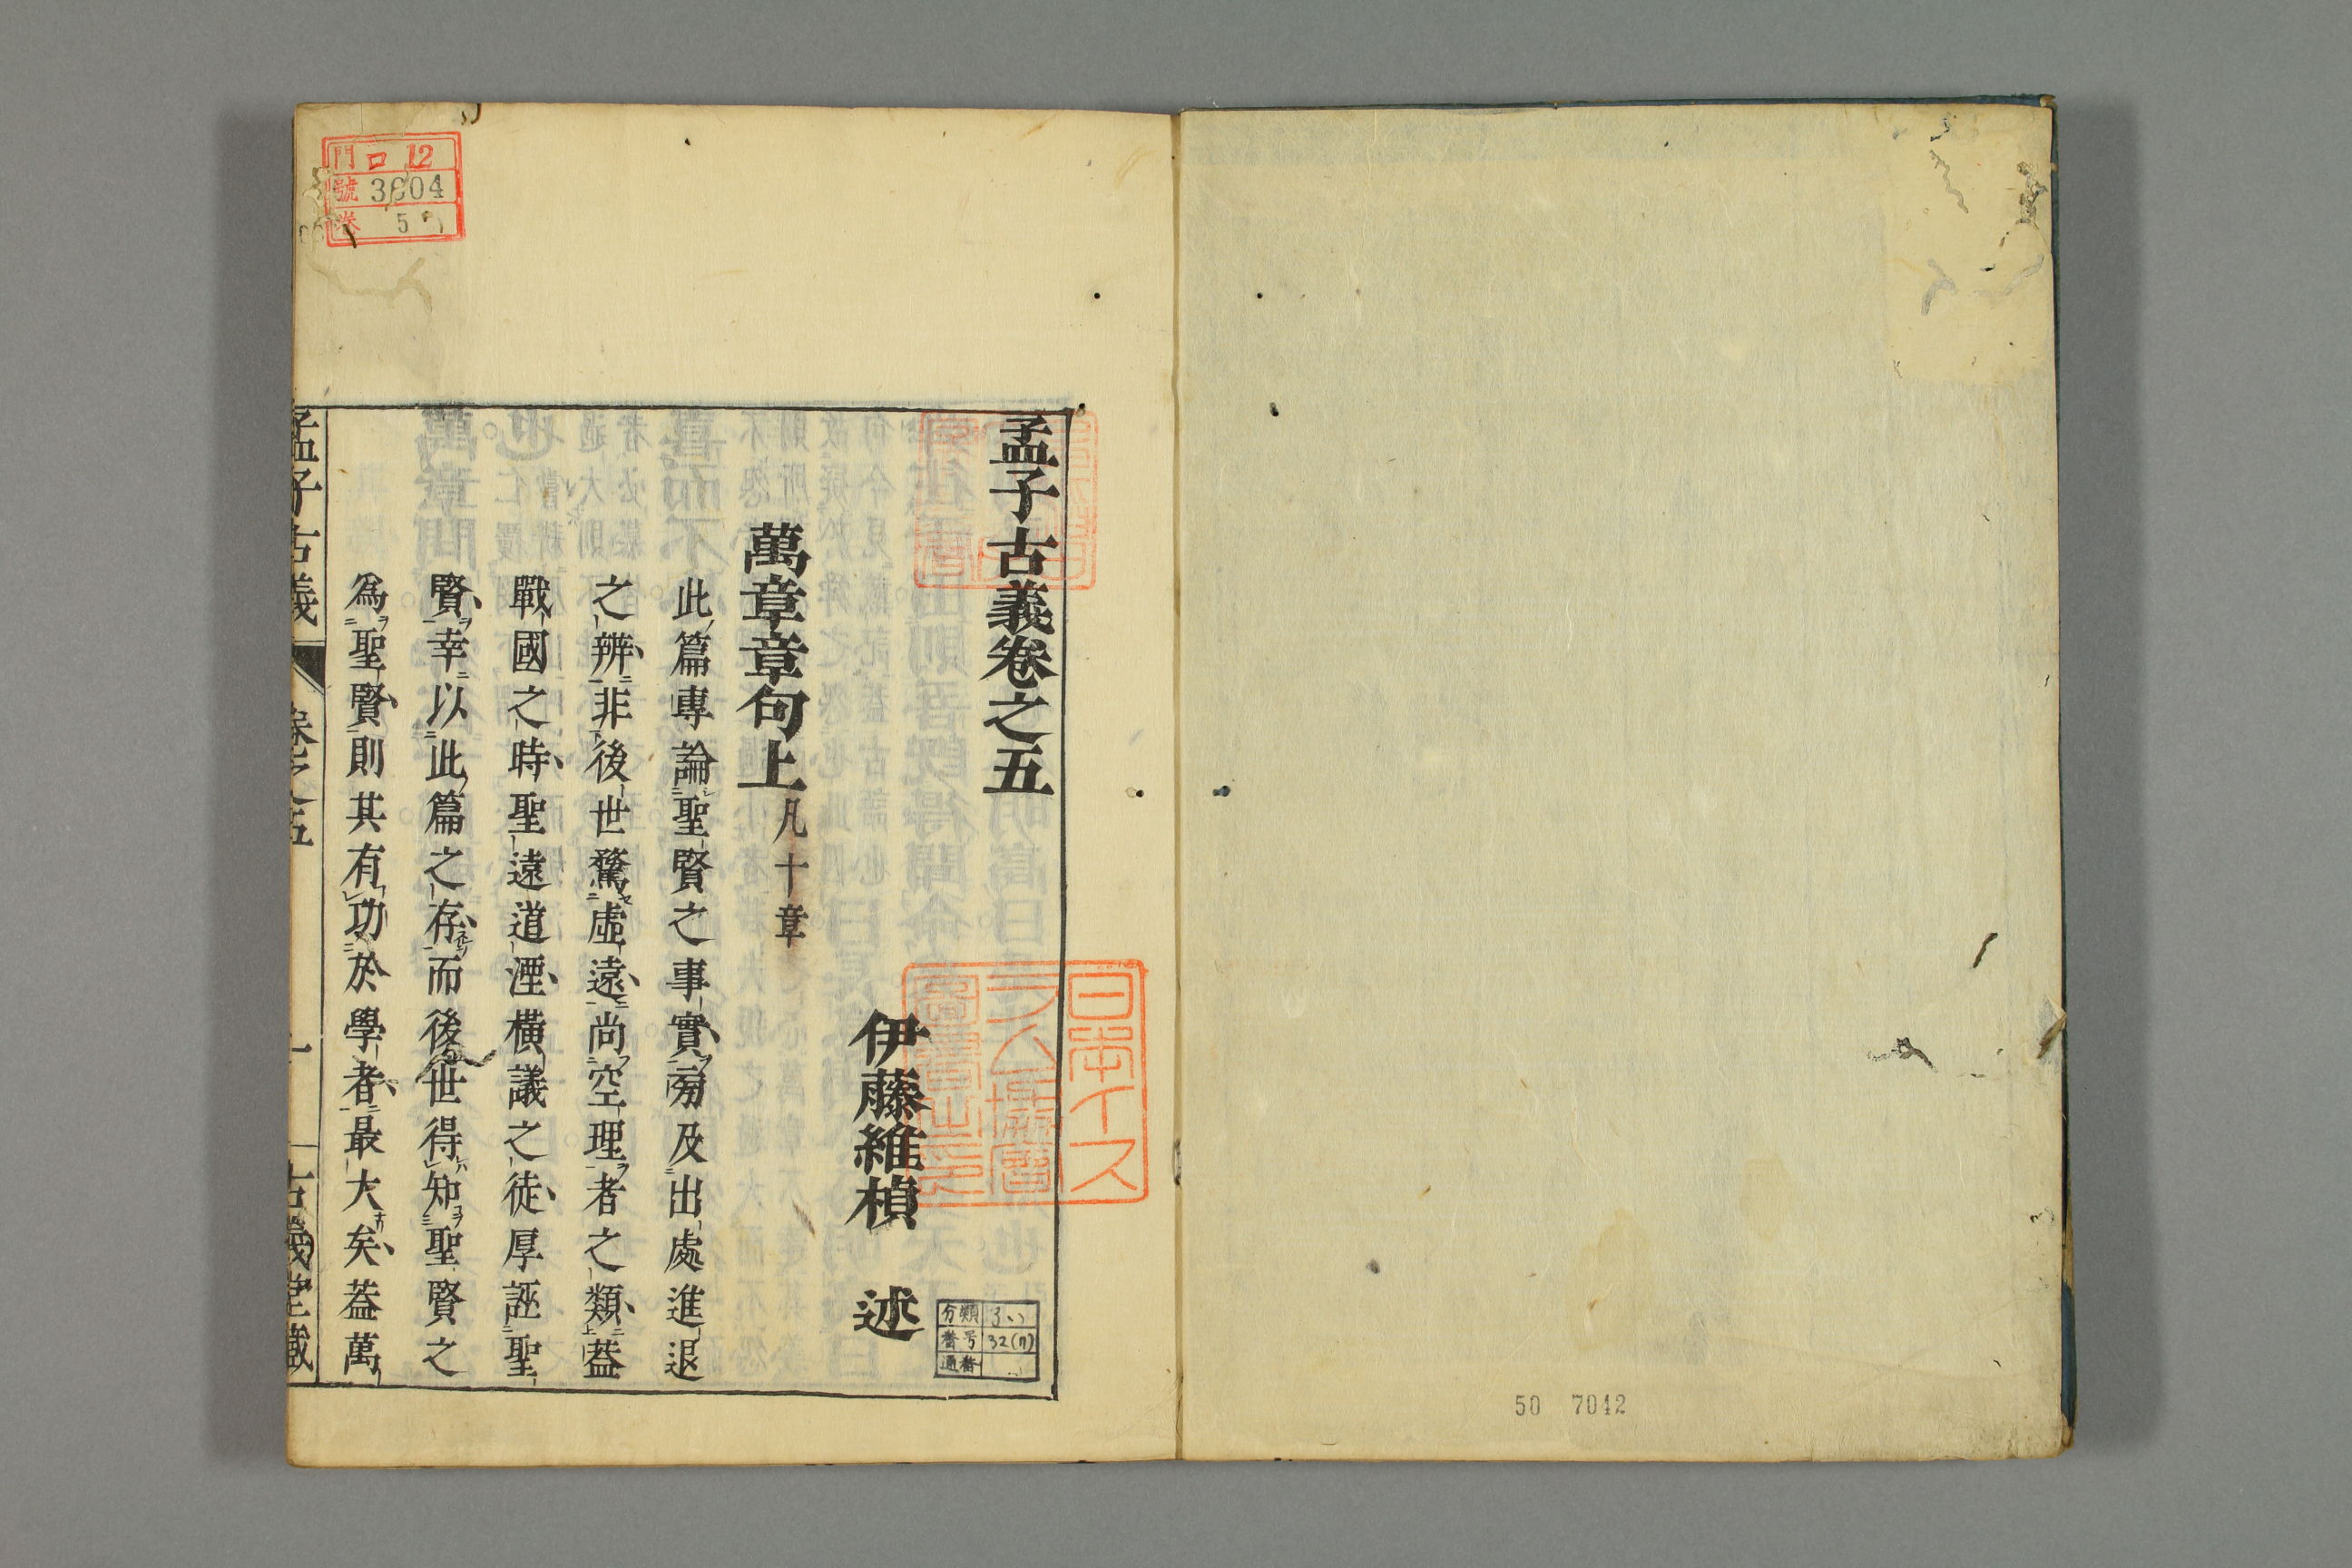 孟子古義卷之五
伊藤維楨 述
萬章章句上 凡十章
此篇專論聖賢之事實旁及出處進退
之辨非後世騖虛遠尚空理者之類蓋
戰國之時聖遠道湮橫議之徒厚誣聖
賢幸以此篇之存而後世得知聖賢之
為聖賢則其有功於學者最大矣蓋萬
孟子古義 卷之五 一 古義堂藏
門 口 12
號 3804
卷 5
日本イス
ラム協會
圖書之印
分類
番号 32(7)
通番
50 7042